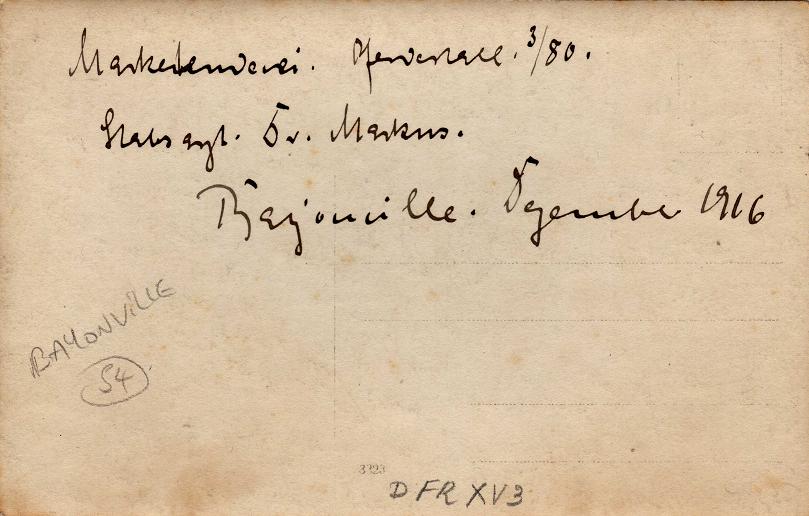 Marketenderei. Pferdestall. 3/80.
Stabsarzt. Dr. Markus.
Bayonville. Dezember 1916
BAYONVILLE
54
3323
DFR XV3